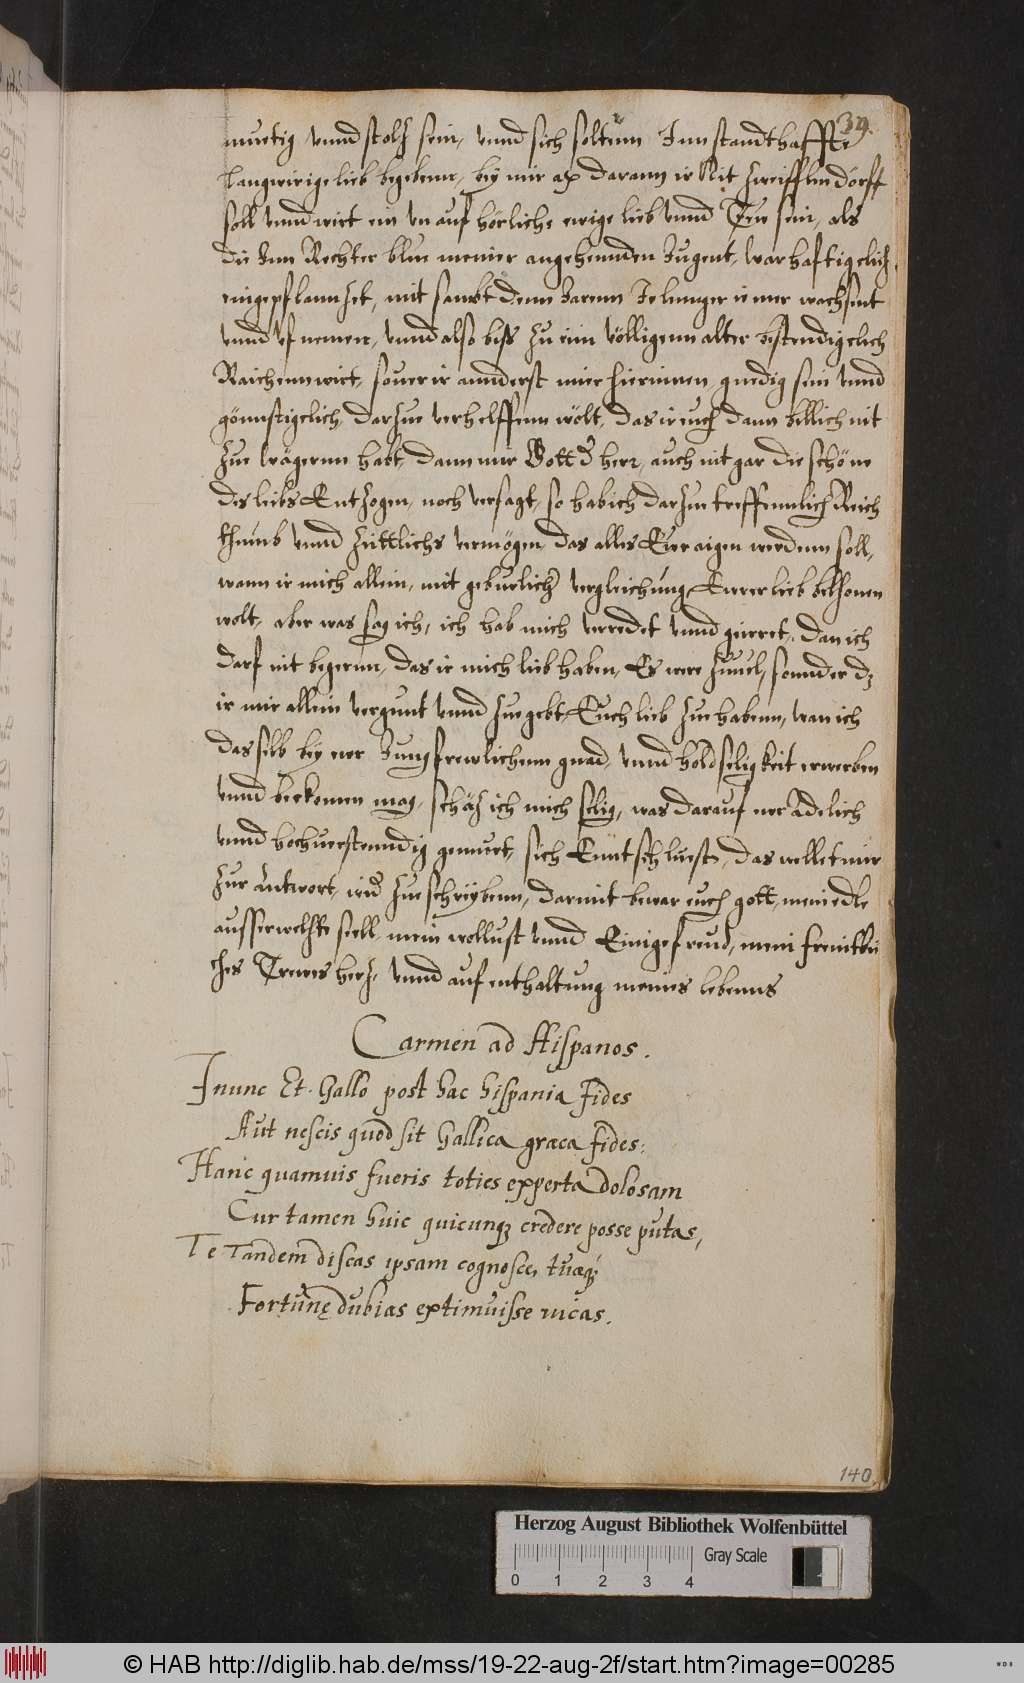 39.
muetig vnnd stoltz sein, vnnd sich soltenn Inn standthaffte
langwirige lieb begebenn, bey mir aber daran ir Nit zweifflen dörfft
soll vnnd wirt ein vnaufhörliche ewige lieb vnnd Trew sein, als
die Inn Rechter blüe meiner angehennden Jugent, warhaftigelich
eingepflanntzet, mit sambt denn Jarenn Je lennger ie mer wachsent
vnnd vfnemen, vnnd also biss zu eim völligenn alter bestendigelich
Raichenn wirt, souer ir annderst mier hierinnen gnedig sein vnnd
günnstigelich darzue verhelffenn wölt, das ir euch dann billich nit
zue wägernn habt, dann mir Gott d herr, auch nit gar die schöne
des leibs Entzogen, noch versagt, so hab ich darzue treffennlich Reich
thumb vnnd zittlichs vermögen, das alles Ewr aigen werdenn soll,
wann ir mich allein, mit geburlicher vergleichung Eurer lieb belhonen
wolt, aber was sag ich, ich hab mich verredet vnnd geirret, dan ich
darf nit begernn, das ir mich lieb haben, Es were zuuil, sonnder dz
ir mir allein vergunt vnnd zue gebt, Euch lieb zue habenn, wan ich
das selb bey ewr Jungfrewlichenn gnad, vnnd holdseligkeit erwerben
vnnd bekomen mag, schätz ich mich selig, was darauf ewr Adelich
vnnd hochuerstenndig gemuet, sich Enntschleust, das wellet mir
zur Antwort, wider zue schreybenn, darmit bewar euch gott, mein edle
ausserwelhte seell mein wollust vnnd Einige freud, mein freuntli
ches Trewes hertz, vnnd aufenthaltung meines lebenns
Carmen ad Hispanos.
I nunc Et Gallo post hac hispania fides
Aut nescis quod sit Gallica graeca fides:
Hanc quamuis fueris toties experta dolosam
Cur tamen huic quicunq; credere posse putas,
Te Tandem discas ipsam cognosce, tuaeq;
Fortunę dubias extimuisse uices.
140.
Herzog August Bibliothek Wolfenbüttel
Gray Scale
0 1 2 3 4
© HAB http://diglib.hab.de/mss/19-22-aug-2f/start.htm?image=00285